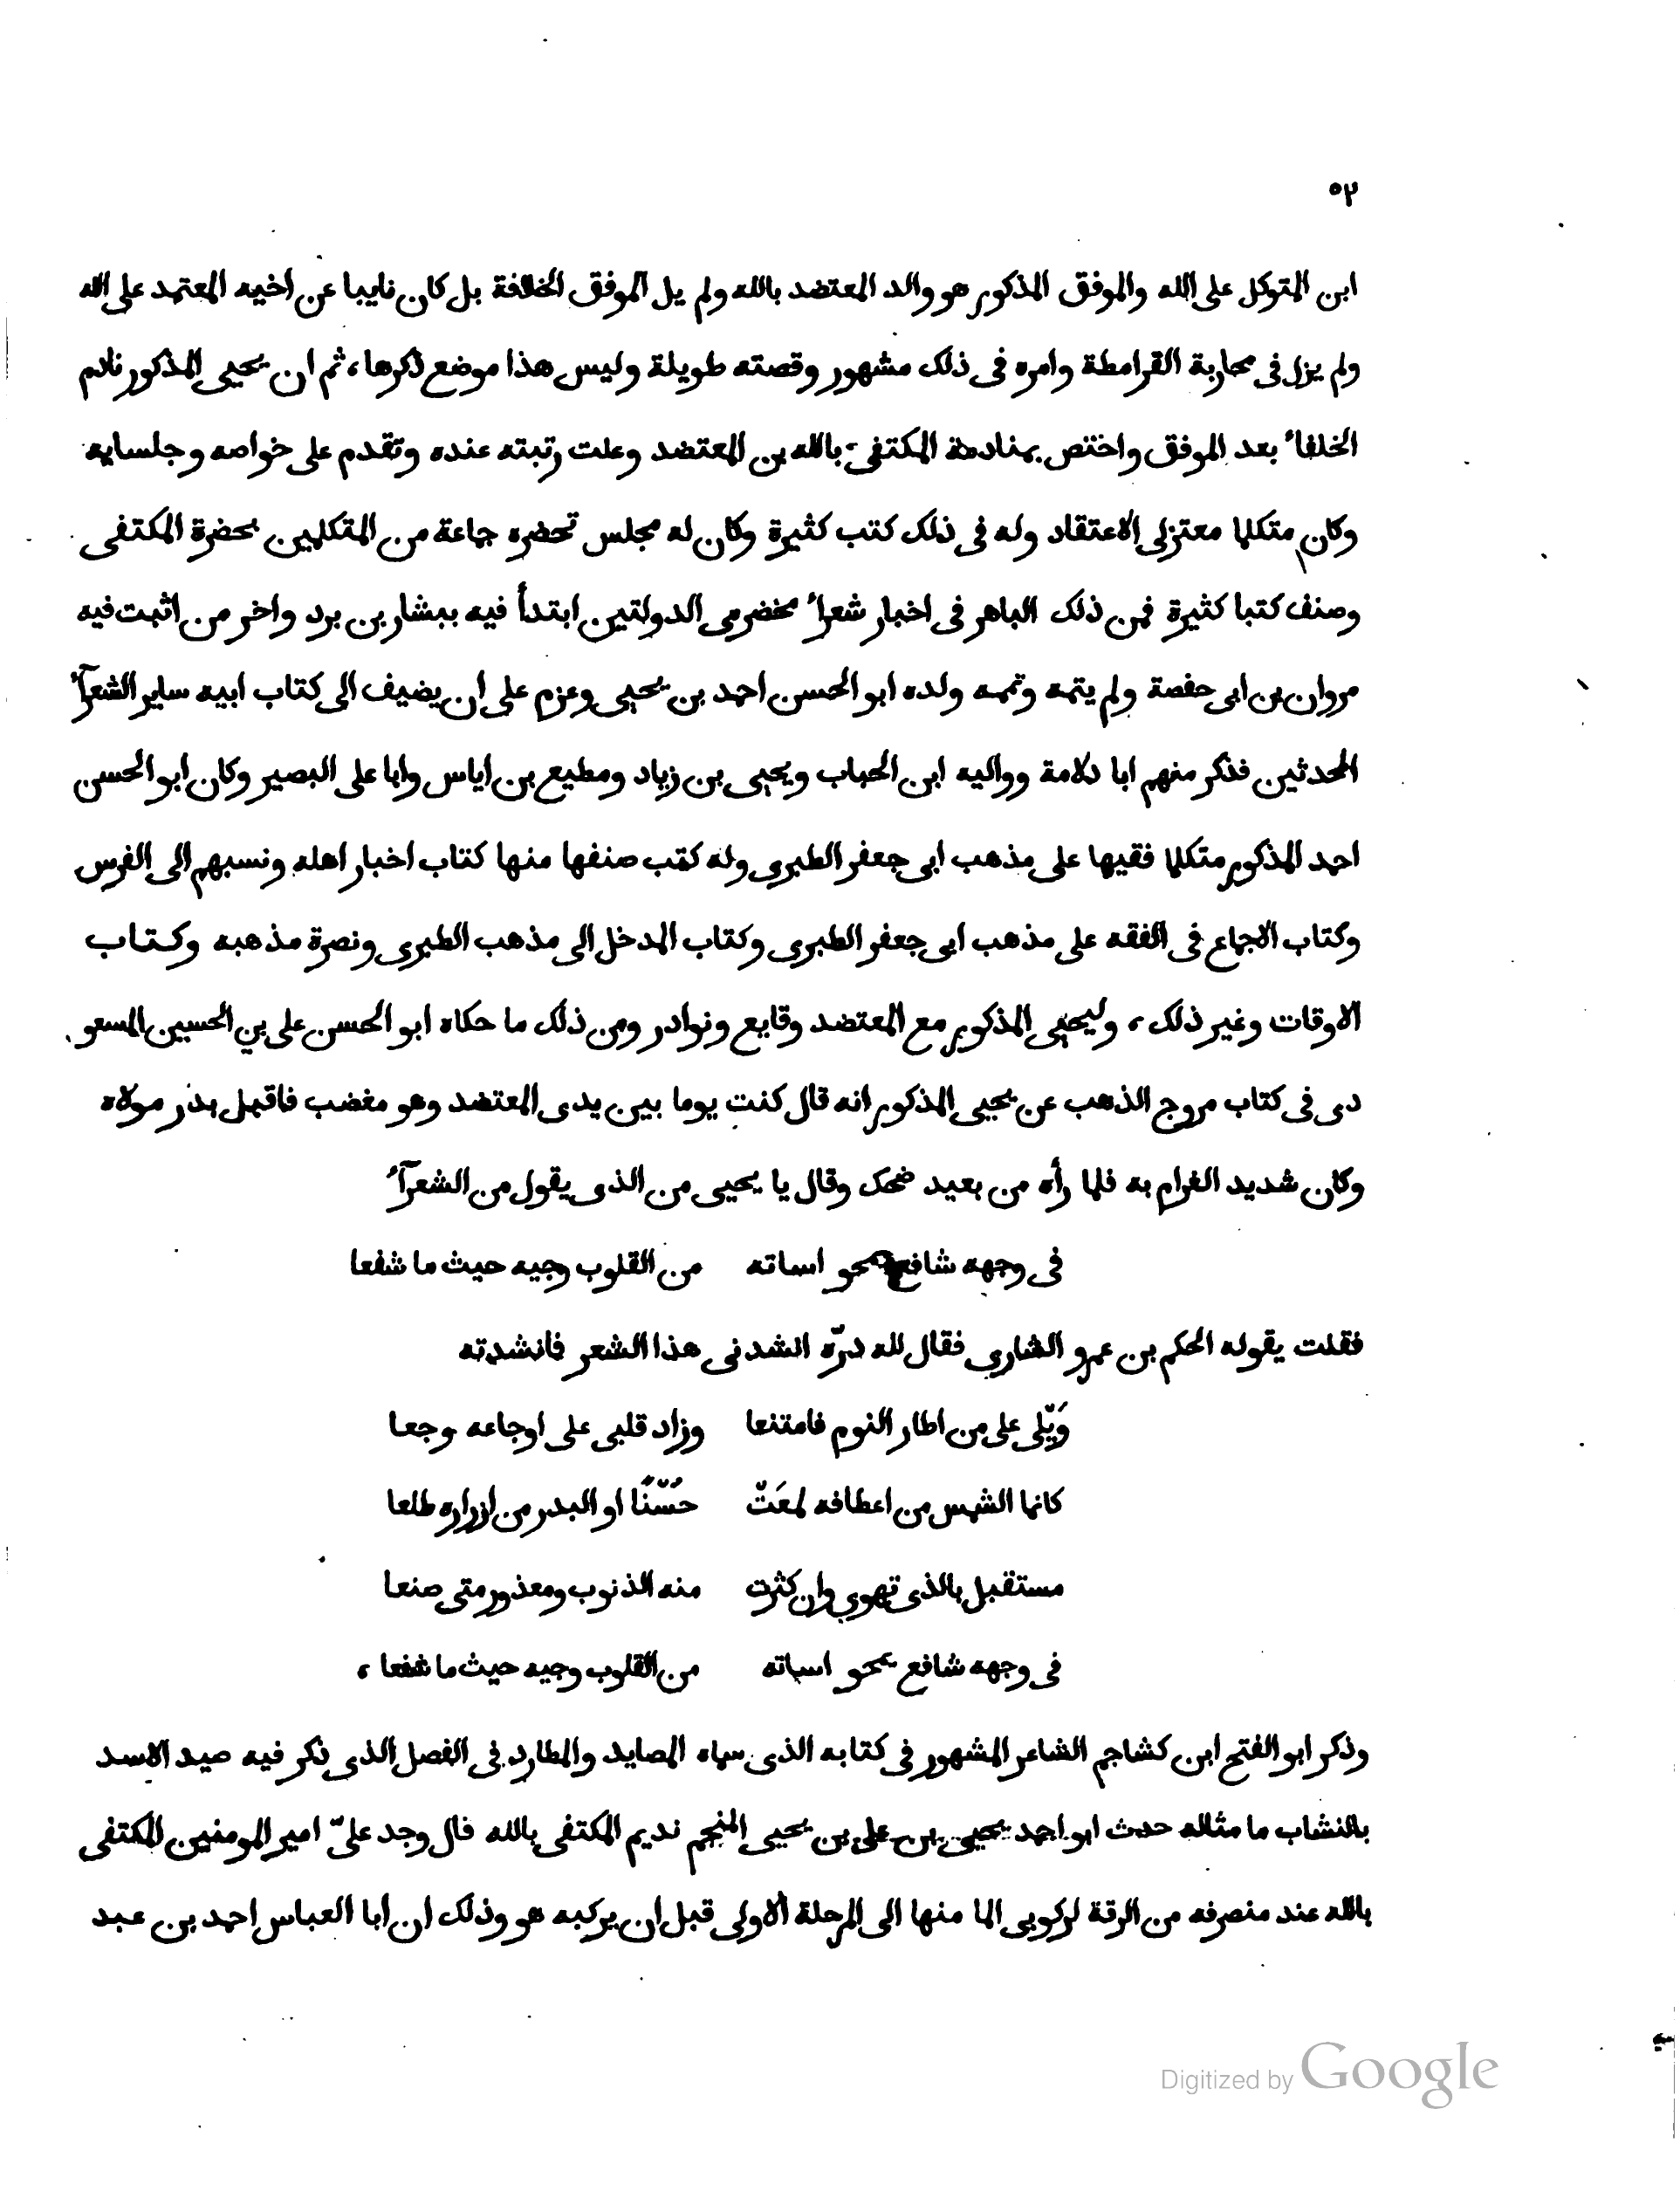 ٥٢
ابن المتوكل على الله والموفق المذكور هو والد المعتضد بالله ولم يل الموفق الخلافة بل كان نايبا عن اخيه المعتمد على الله
ولم يزل فى محاربة القرامطة وامره فى ذلك مشهور وقصته طويلة وليس هذا موضع ذكرها، ثم ان يحيى المذكور نادم
الخلفاء بعد الموفق واختص بمنادمة المكتفى بالله بن المعتضد وعلت رتبته عنده وتقدم على خواصه وجلسايه
وكان متكلما معتزلى الاعتقاد وله فى ذلك كتب كثيرة وكان له مجلس تحضره جماعة من المتكلمين بحضرة المكتفى
وصنف كتبا كثيرة فمن ذلك الباهر فى اخبار شعراء مخضرمى الدولتين ابتدأ فيه ببشار بن برد واخر من اثبت فيه
مروان بن ابى حفصة ولم يتمه وتممه ولده ابو الحسن احمد بن يحيى وعزم على ان يضيف الى كتاب ابيه ساير الشعرآء
المحدثين فذكر منهم ابا دلامة ووالبه ابن الحباب ويحيى بن زياد ومطيع بن اياس وابا على البصير وكان ابو الحسن
احمد المذكور متكلما فقيها على مذهب ابى جعفر الطبرى وله كتب صنفها منها كتاب اخبار اهله ونسبهم الى الفرس
وكتاب الاجماع فى الفقه على مذهب ابى جعفر الطبرى وكتاب المدخل الى مذهب الطبرى ونصرة مذهبه وكتاب
الاوقات وغير ذلك، وليحيى المذكور مع المعتضد وقايع ونوادر ومن ذلك ما حكاه ابو الحسن على بن الحسين المسعو
دى فى كتاب مروج الذهب عن يحيى المذكور انه قال كنت يوما بين يدى المعتضد وهو مغضب فاقبل بدر مولاه
وكان شديد الغرام به فلما رأه من بعيد ضحك وقال يا يحيى من الذى يقول من الشعرآء
فى وجهه شافع يمحو اساته من القلوب وجيه حيث ما شفعا
فقلت يقوله الحكم بن عمرو الشارى فقال لله درّه انشدنى هذا الشعر فانشدته
وَيْلى على من اطار النوم فامتنعا وزاد قلبى على اوجاعه وجعا
كانما الشمس من اعطافه لمعَتْ حُسْنًا او البدر من ازراره طلعا
مستقبل بالذى تهوى وان كثرت منه الذنوب ومعذور متى صنعا
فى وجهه شافع يمحو اساته من القلوب وجيه حيث ما شفعا،
وذكر ابو الفتح ابن كشاجم الشاعر المشهور فى كتابه الذى سماه المصايد والمطارد فى الفصل الذى ذكر فيه صيد الاسد
بالنشاب ما مثاله حدث ابو احمد يحيى بن على بن يحيى المنجم نديم المكتفى بالله قال وجد علىّ امير المومنين المكتفى
بالله عند منصرفه من الرقة لركوبى الما منها الى المرحلة الاولى قبل ان يركبه هو وذلك ان ابا العباس احمد بن عبد
Digitized by Google